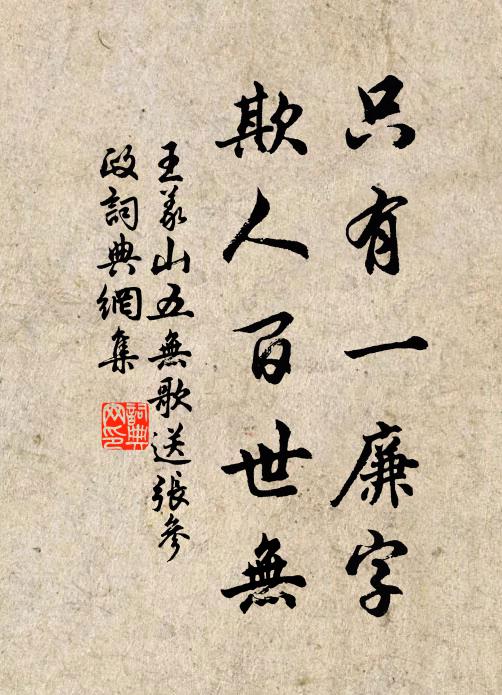 只有一廉字
欺人百世無
王義山五無歌送張參
政詞典網集
詞典網印